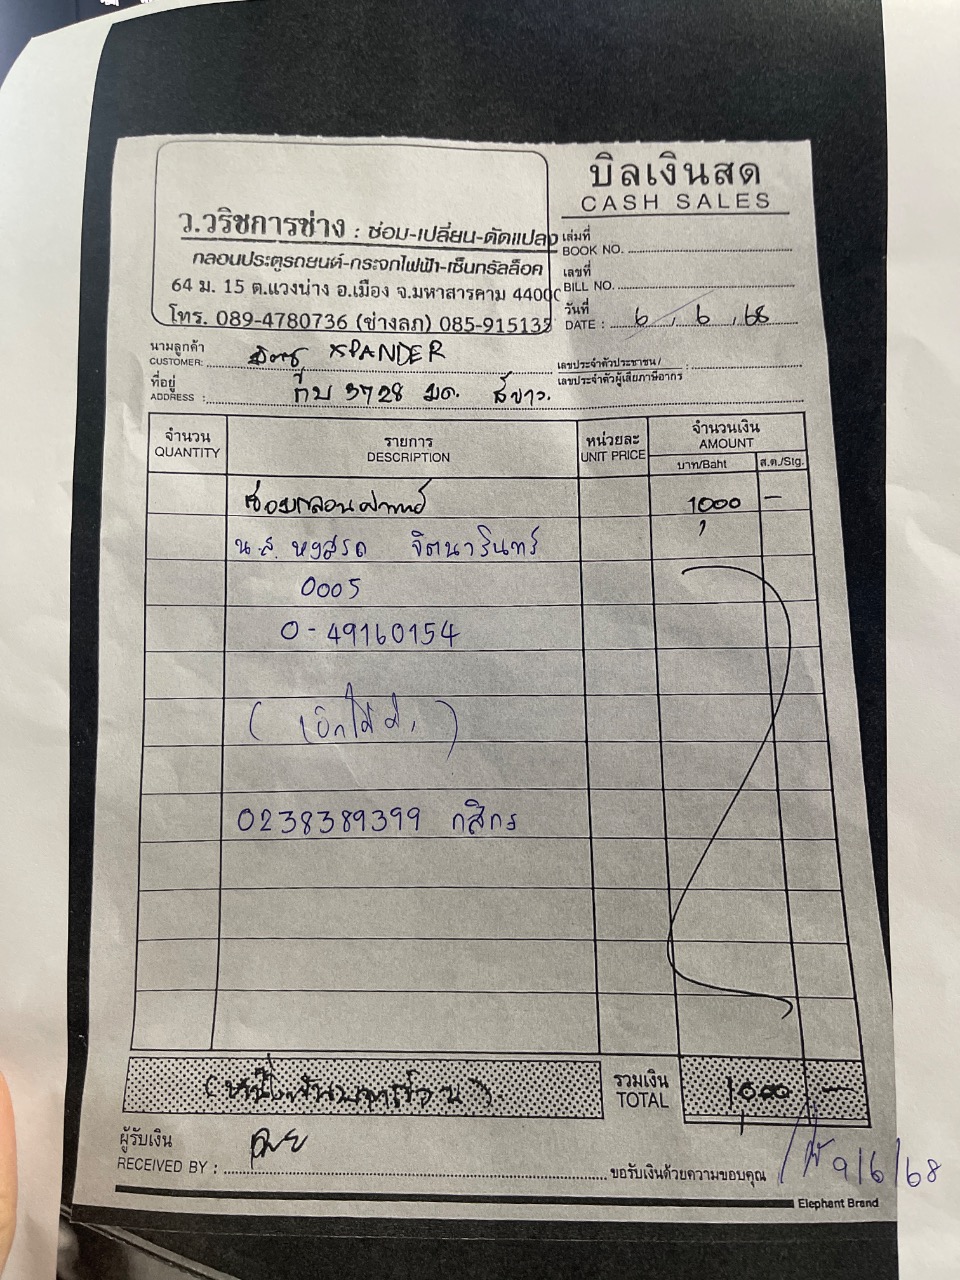 บิลเงินสด
CASH SALES
ว.วริชการช่าง : ซ่อม-เปลี่ยน-ดัดแปลง
กลอนประตูรถยนต์-กระจกไฟฟ้า-เซ็นทรัลล็อค
64 ม. 15 ต.แวงน่าง อ.เมือง จ.มหาสารคาม 4400
โทร. 089-4780736 (ช่างลภ) 085-915138
เล่มที่
BOOK NO.
เลขที่
BILL NO.
วันที่
DATE : 6 / 6 / 68
นามลูกค้า
CUSTOMER: XPANDER
เลขประจำตัวประชาชน/
เลขประจำตัวผู้เสียภาษีอากร :
ที่อยู่
ADDRESS : 3728 มค. สีขาว.
จำนวน รายการ หน่วยละ จำนวนเงิน
QUANTITY DESCRIPTION UNIT PRICE AMOUNT
บาท/Baht ส.ต./Stg.
1000 -
น.ส. จิตนารินทร์
0005
0-49160154
0238389399 กสิกร
รวมเงิน
TOTAL 1000 -
ผู้รับเงิน
RECEIVED BY :
ขอรับเงินด้วยความขอบคุณ
9/6/68
Elephant Brand